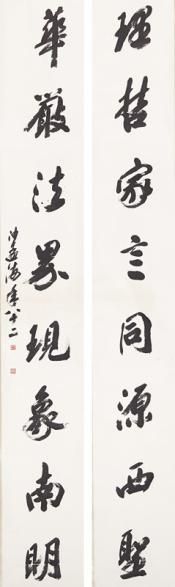 理哲家言同源西聖
華嚴法界現象南明
沙孟海年八十二